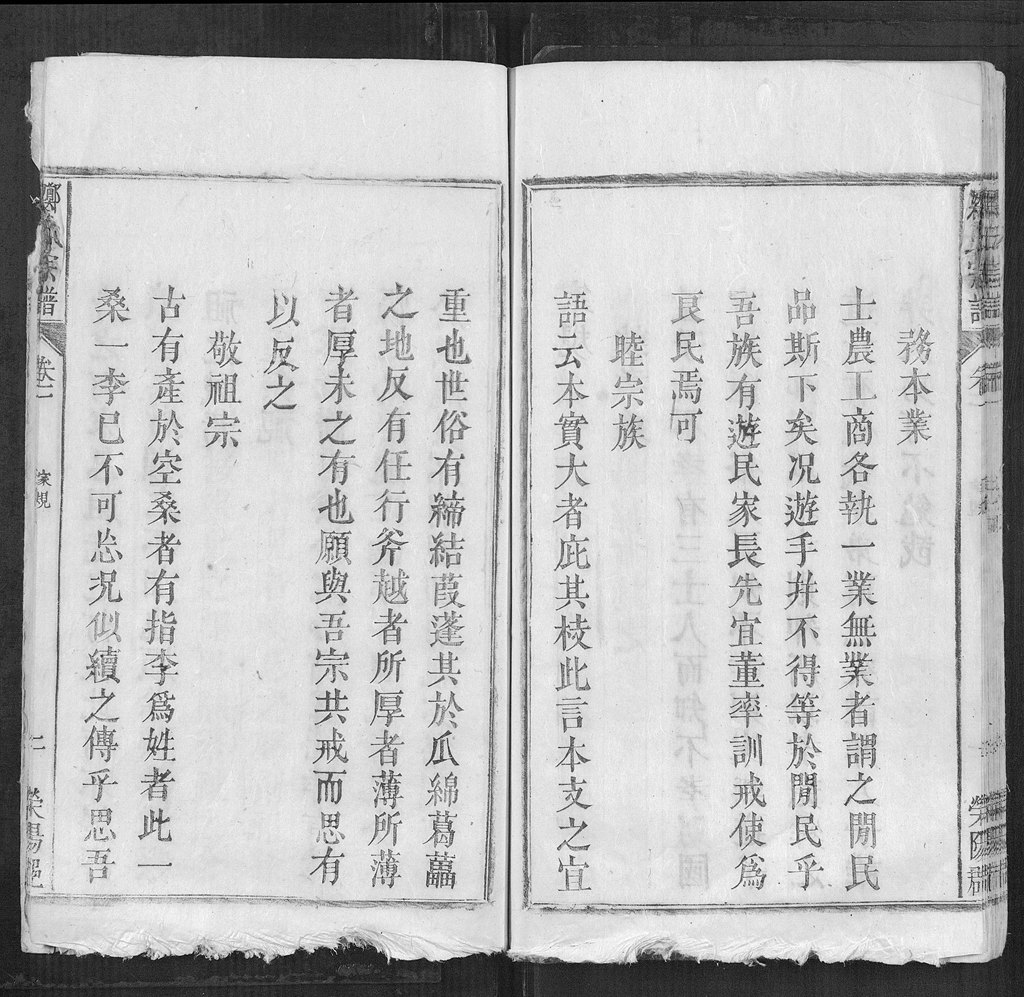 務本業
士農工商各執一業無業者謂之閒民
品斯下矣况遊手并不得等於閒民乎
吾族有遊民家長先宜董率訓戒使爲
良民焉可
睦宗族
語云本實大者庇其枝此言本支之宜
重也世俗有締結葭蓬其於瓜綿葛藟
之地反有任行斧越者所厚者薄所薄
者厚未之有也願與吾宗共戒而思有
以反之
敬祖宗
古有產於空桑者有指李爲姓者此一
桑一李已不可忘况似續之傳乎思吾
鄭氏宗譜
卷一
家規
二
滎陽